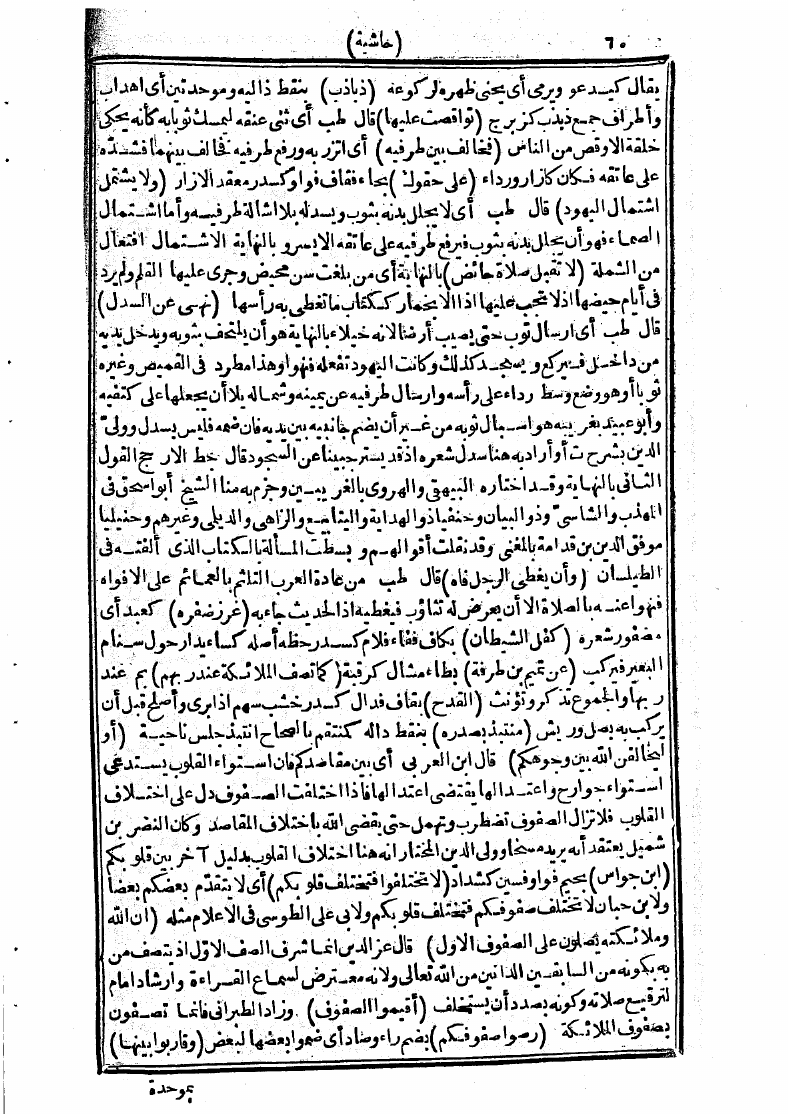 ٦٠ (حاشية)
يقال كيدعو ويرمى أى يحنى ظهره لركوعه (ذباذب) بنقط ذاليه وموحدتين أى اهداب
وأطراف جمع ذبذب كزبرج (تواقصت عليها) قال طب أى ثنى عنقه ليمسك ثوبا به كأنه يحكى
خلقة الاوقص من الناس (فخالف بين طرفيه) أى اتزر به ورفع طرفيه فخالف بينهما فشده
على عاتقه فكان كازار ورداء (على حقوك) بحاء فقاف فواو كسدر معقد الازار (ولا يشتمل
اشتمال اليهود) قال طب أى لا يجلل بدنه بثوب ويسدله بلا اشالة طرفيه وأما اشتمال
الصماء فهو أن يجلل بدنه بثوب فيرفع طرفيه على عاتقه الايسر وبالنهاية الاشتمال افتعال
من الشملة (لا تقبل صلاة حائض) بالنهاية أى من بلغت سن محيض وجرى عليها القلم ولم يرد
فى أيام حيضها اذ لا تجب عليها اذا الا بخمار ككتاب ما تغطى به رأسها (نهى عن السدل)
قال طب أى ارسال ثوب حتى يصيب أرضا لانه خيلاء بالنهاية هو أن يلتحف بثوبه ويدخل يديه
من داخل فيركع ويسجد كذلك وكانت اليهود تفعله فنهوا وهذا مطرد فى القميص وغيره
ثوبا أو هو وضع وسط رداء على رأسه وارسال طرفيه عن يمينه وشماله بلا أن يجعلها على كتفيه
وأبو عبيد بغريبه هو اسبال ثوبه من غير أن يضم جانبيه بين يديه فان ضمه فليس بسدل وولى
الدين بشرح ت أو أراد به هنا سدل شعره اذ قد يستر جبينا عن السجود قال خط الارجح القول
الثانى بالنهاية وقد اختاره البيهقى والهروى بالغريبين وجزم به منا الشيخ أبو اسحق فى
المهذب والشاسى وذو البيان وحنفيا ذو الهداية والبنايع والزاهى والديلى وغيرهم وحنبليا
موفق الدين بن قدامة بالمغنى وقد نقلت أقوالهم وبسطت المسألة بالكتاب الذى ألفته فى
الطيلسان (وأن يغطى الرجل فاه) قال طب من عادة العرب التلثم بالعمائم على الافواه
فنهوا عنه بالصلاة الا أن يعرض له تثاؤب فيغطيه اذا الحديث جاء به (غرز ضفره) كعبد أى
مضفور شعره (كفل الشيطان) بكاف ففاء فلام كسدر حظه أصله كساء يدار حول سنام
البعير فيركب (عن تميم بن طرفة) بطاء مشال كرقبة (كما تصف الملائكة عند ربهم) بم عند
ربها والجموع تذكر وتؤنث (القدح) بقاف فدال كسدر خشب سهم اذا برى وأصلح قبل أن
يركب به نصل وريش (منتبذ بصدره) بنقط داله كمنتقم بالصحاح انتبذ جلس ناحية (أو
ليخالفن الله بين وجوهكم) قال ابن العربى أى بين مقاصدكم فان استواء القلوب يستدعى
استواء جوارح واعتدالها يقتضى اعتدالها فاذا اختلفت الصفوف دل على اختلاف
القلوب فلا تزال الصفوف تضطرب وتهمل حتى يقضى الله باختلاف المقاصد وكان النضر بن
شميل يعتقد أنه يريد مسخا وولى الدين المختار انه هنا اختلاف القلوب بدليل آخر بين قلوبكم
(ابن جواس) بجيم فواو فسين كشداد (لا تختلفوا فتختلف قلوبكم) أى لا يتقدم بعضكم بعضا
ولابن حبان لا تختلف صفوفكم فتختلف قلوبكم ولابى على الطوسى فى الاعلام مثله (ان الله
وملائكته يصلون على الصفوف الاول) قال عز الدين انما شرف الصف الاول اذ يتصف من
به بكونه من السابقين الدانين من الله تعالى ولانه معترض لسماع القراءة وارشاد امام
لترقيع صلاته وكونه بصدد أن يستخلف (أقيموا الصفوف) وزاد الطبرانى فانما تصفون
بصفوف الملائكة (رصوا صفوفكم) بضم راء وصاد أى ضموا بعضها لبعض (وقاربوا بينها)
بموحدة